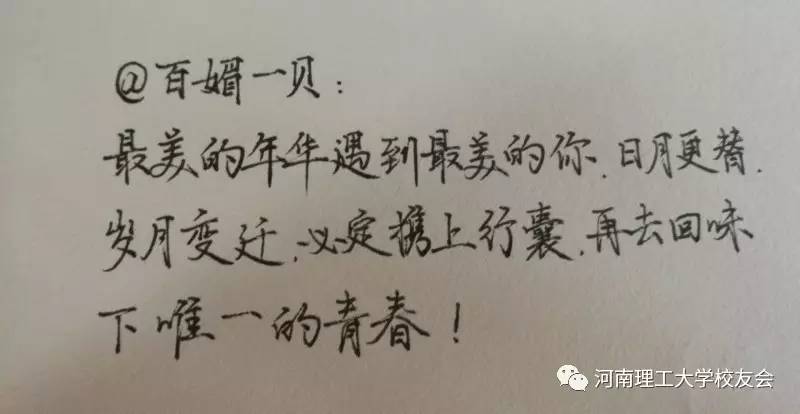 @百媚一贝：
最美的年华遇到最美的你.日月更替.
岁月变迁.必定携上行囊.再去回味
下唯一的青春！
河南理工大学校友会